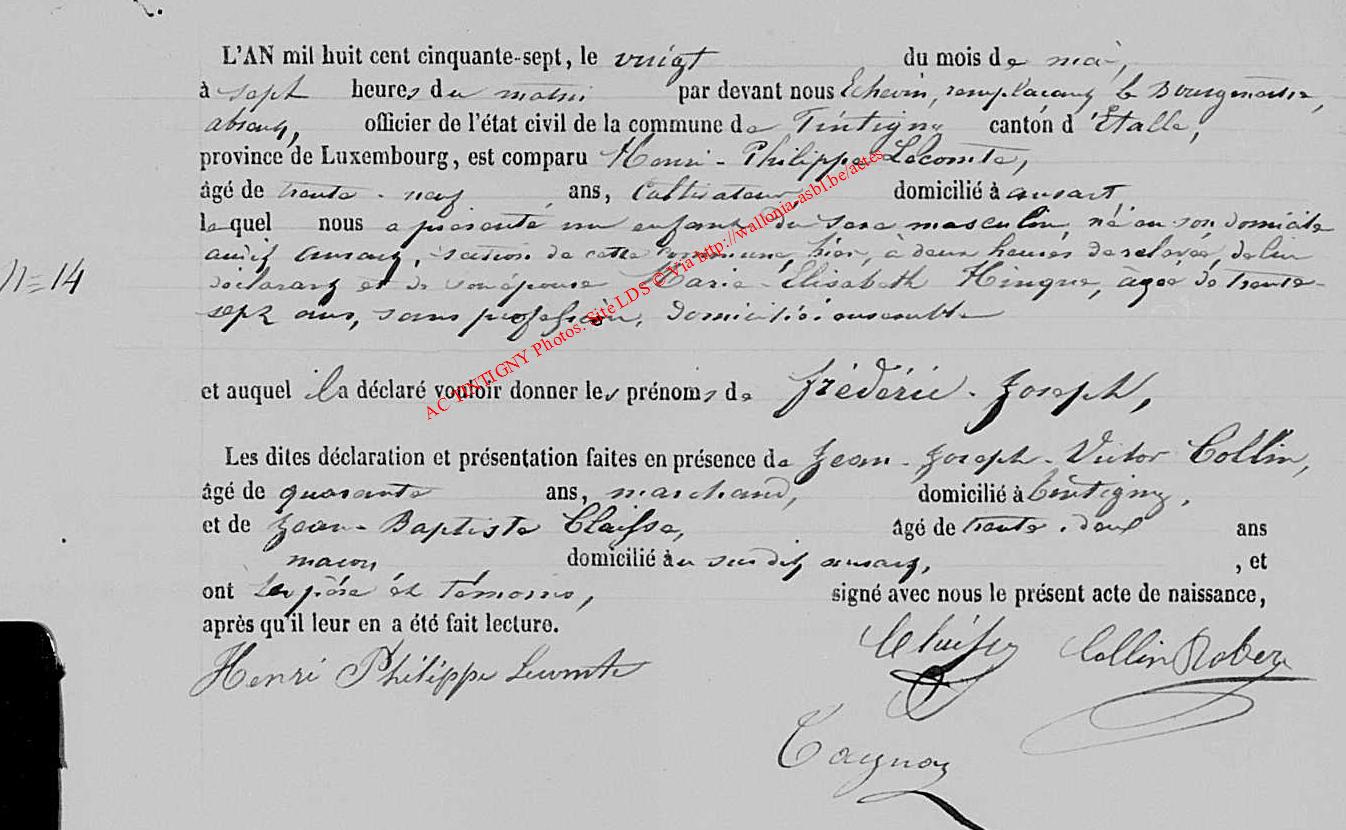 L'AN mil huit cent cinquante-sept, le vingt du mois de mai,
à sept heures du matin par devant nous Echevin, remplaçant le Bourgmestre,
absent, officier de l'état civil de la commune de Tintigny canton d'Etalle,
province de Luxembourg, est comparu Henri-Philippe Lecomte,
âgé de trente-neuf ans, Cultivateur, domicilié à ansart,
lequel nous a présenté un enfant du sexe masculin, né en son domicile
audit ansart, section de cette commune, hier, à deux heures de relevée, de lui
N=14
déclarant et de son épouse Marie-Elisabeth Hingue, âgée de trente-
sept ans, sans profession, domiciliés ensemble
et auquel il a déclaré vouloir donner les prénoms de Frédéric-Joseph,
Les dites déclaration et présentation faites en présence de Jean-Joseph-Victor Collin,
âgé de quarante ans, marchand, domicilié à tintigny,
et de Jean-Baptiste Claisse, âgé de trente-deux ans
maçon, domicilié au susdit ansart, , et
ont les père et témoins, signé avec nous le présent acte de naissance,
après qu'il leur en a été fait lecture.
Claisse Collin Rober
Henri Philippe Lecomte
AC TINTIGNY Photos. Site LDS © Via http://wallonia-asbl.be/actes